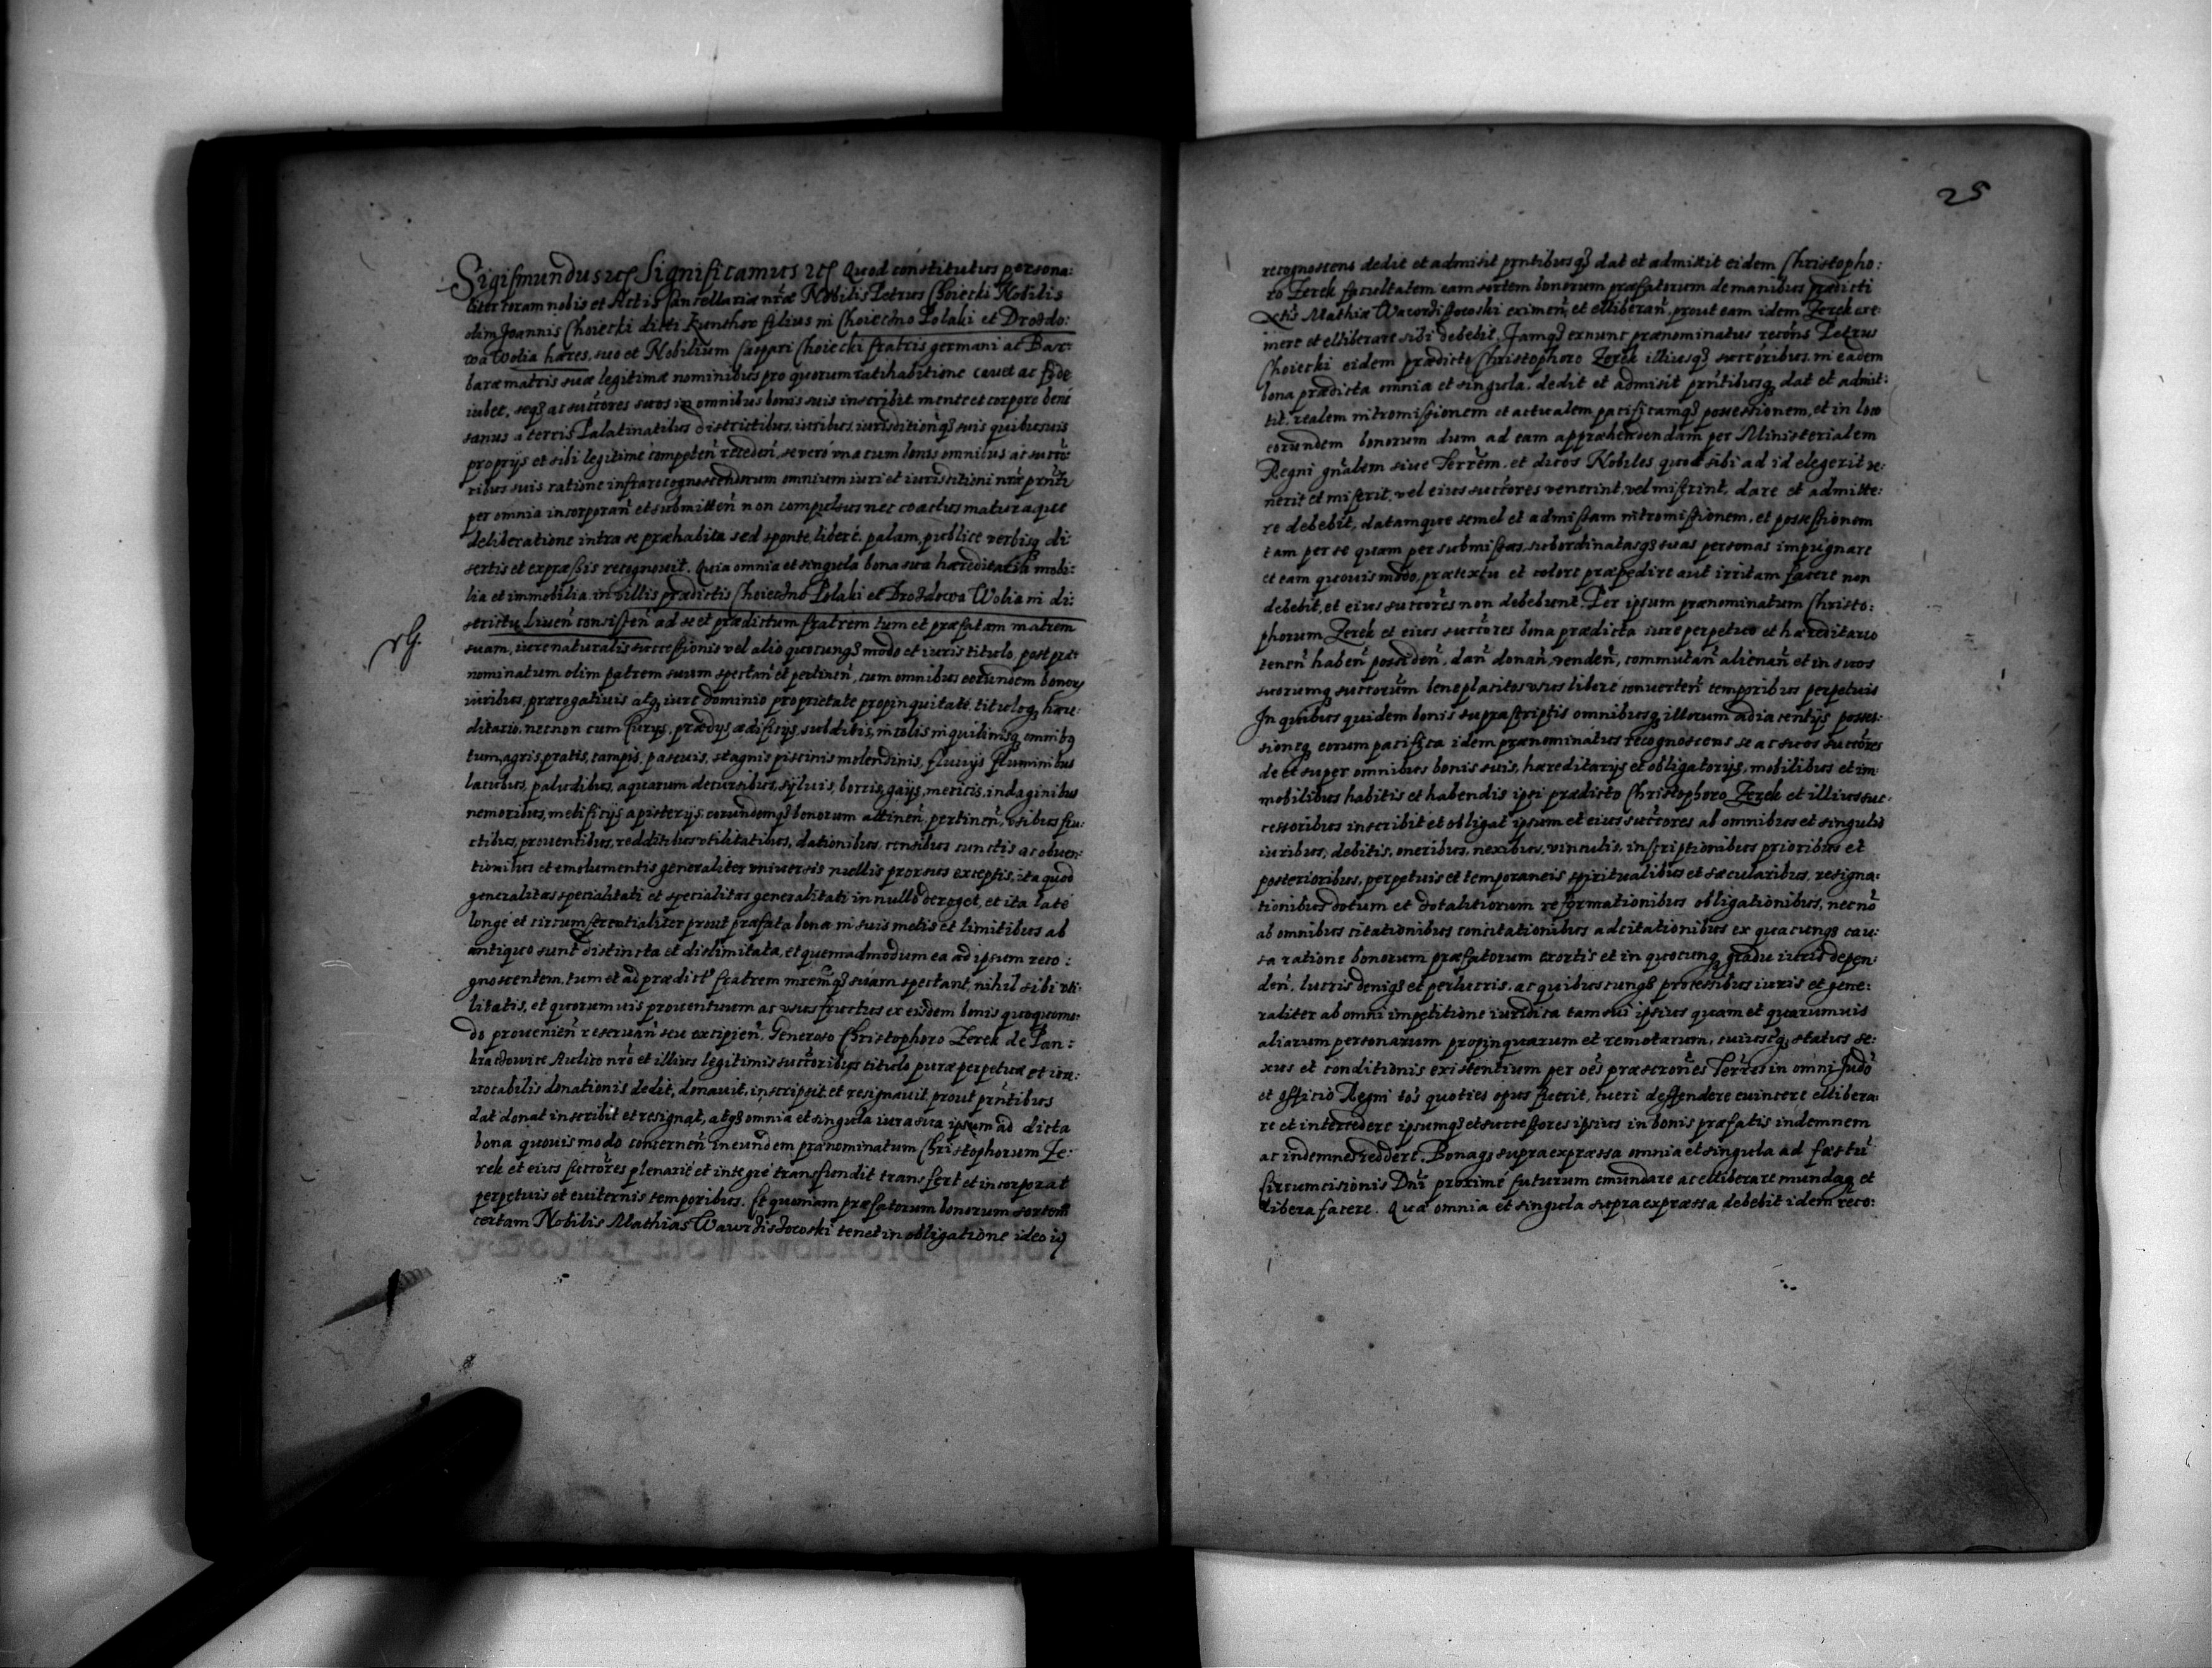 Sigismundus etc. Significamus etc. Quod constitutus persona:
liter coram nobis et Actis Cancellariæ nræ Nobilis Petrus Choiecki Nobilis
olim Joannis Choiecki dicti Kunthor filius in Choieczno Polaki et Drozdo:
wa Wolia hæres, suo et Nobilium Caspari Choiecki fratris germani ac Bar:
baræ matris suæ legitimæ nominibus pro quorum ratihabitione cavet ac fide
iubet, seqȝ ac succores suos in omnibus bonis suis inscribit mente et corpore bene
sanus a terris Palatinatibus districtibus, iuribus, iurisditionqȝ suis quibusuis
proprijs et sibi legitime competeñ recedeñ, se vero una cum bonis omnibus ac succo:
ribus suis ratione infrarecognoscendorum omnium iuri et iurisditioni nræ prñti
per omnia incorporañ et submitteñ non compulsus nec coactus matura que
deliberatione intra se præhabita sed sponte, libere, palam, publice verbisqȝ di:
sertis et expræssis recognouit. Quia omnia et singula bona sua hæreditaria mobi:
lia et immobilia in villis prædictis Choieczno Polaki et Drozdowa Wolia in di:
strictu Liueñ consisteñ ad se et prædictum fratrem tum et præfatam matrem
suam, iure naturalis successionis vel alio quocunqȝ modo et iuris titulo, post præ:
nominatum olim patrem suum spectañ et pertineñ, cum omnibus eorundem bonorȝ
iuribus, prærogatiuis atqȝ iure dominio proprietate propinquitate, tituloqȝ hære:
ditario, necnon cum Curijs, prædijs, ædificijs, subditis, incolis inquilinisqȝ omnibȝ
tum, agris, pratis, campis, pascuis, stagnis piscinis molendinis, fluuijs fluminibus
lacubus, paludibus, aquarum decursibus, syluis, borris, gaijs, mericis, indaginibus
nemoribus, mellificijs apisterijs, eorundemqȝ bonorum attineñ, pertineñ, usibus fru:
ctibus, prouentibus, redditibus utilitatibus, dationibus, censibus cunctis ac obuen:
tionibus et emolumentis generaliter vniuersis nullis prorsus exceptis, ita quod
generalitas specialitati et specialitas generalitati in nullo deroget, et ita late
longe et circumferentialiter prout præfata bona in suis metis et limitibus ab
antiquo sunt distincta et dislimitata, et quemadmodum ea ad ipsum reco:
gnoscentem, tum et ad prædict fratrem mremqȝ suam spectant, nihil sibi vti:
litatis, et quorumuis prouentuum ac ususfructus ex eisdem bonis quoquomo:
do prouenieñ reseruañ seu excipieñ. Generoso Christophoro Zerek de Pan:
kracowice Aulico nro et illius legitimis succoribus titulo puræ perpetuæ et irre:
uocabilis donationis dedit, donauit, inscripsit et resignauit prout prñtibus
dat donat inscribit et resignat, atqȝ omnia et singula iura sua ipsum ad dicta
bona quouis modo concerneñ in eundem prænominatum Christophorum Ze:
rek et eius succores plenarie et integre transfundit transfert et incorporat
perpetuis et euiternis temporibus. Et quoniam præfatorum bonorum sortem
certam Nobilis Mathias Waw tenet in obligatione ideo is
25
recognoscens dedit et admisit prñtibusqȝ dat et admittit eidem Christopho:
ro Zerek facultatem eam sortem bonorum præfatorum de manibus prædicti
Mathiæ eximeñ, et elliberañ, prout eam idem Zerek exi:
mere et elliberare sibi debebit. Jamqȝ exnunc prænominatus recons Petrus
Choiecki eidem prædicto Christophoro Zerek illiusqȝ succoribus in eadem
bona prædicta omnia et singula, dedit et admisit prñtibusqȝ dat et admit:
tit, realem intromissionem et actualem pacificamqȝ possessionem, et in loco
eorundem bonorum dum ad eam appræhendendam per Ministerialem
Regni gnalem siue Terrem, et duos Nobiles quos sibi ad id elegerit ve:
nerit et miserit, vel eius succores venerint, vel miserint, dare et admitte:
re debebit, datamque semel et admissam intromissionem, et possessionem
tam per se quam per submissas, subordinatasqȝ suas personas impugnare
et eam quouis modo, prætextu et colore præpedire aut irritam facere non
debebit, et eius succores non debebunt. Per ipsum prænominatum Christo:
phorum Zerek et eius succores bona prædicta iure perpetuo et hæreditario
teneñ habeñ possideñ, dañ donañ, vendeñ, commutañ alienañ et in suos
suorumqȝ succorum beneplacitos usus libere conuerteñ temporibus perpetuis
In quibus quidem bonis suprascriptis omnibusqȝ illorum adiacentijs posses:
sioneqȝ eorum pacifica idem prænominatus recognoscens se ac suos succores
de et super omnibus bonis suis, hæreditarijs et obligatorijs, mobilibus et im:
mobilibus habitis et habendis ipsi prædicto Christophoro Zerek et illius suc:
cessoribus inscribit et obligat ipsum et eius succores ab omnibus et singulis
iuribus, debitis, oneribus, nexibus, vinculis, inscriptionibus prioribus et
posterioribus, perpetuis et temporaneis spiritualibus et sæcularibus, resigna:
tionibus dotum et dotalitiorum reformationibus obligationibus, necno
ab omnibus citationibus concitationibus adcitationibus ex quacunqȝ cau:
sa ratione bonorum præfatorum exortis et in quocunqȝ gradu iuris depen:
deñ, lucris deniqȝ et perlucris, ac quibuscunqȝ processibus iuris et gene:
raliter ab omni impetitione iuridica tam sui ipsius quam et quarumuis
aliarum personarum propinquarum et remotarum, cuiuscqȝ status se:
xus et conditionis existentium per oes præscrones Terres in omni Judo
et officio Regni tos quoties opus fuerit, tueri deffendere euincere ellibera:
re et intercedere ipsumqȝ et successores ipsius in bonis præfatis indemnem
ac indemnes reddere. Bonaqȝ supraexpræssa omnia et singula ad fæstu
Circumcisionis Dni proxime futurum emundare ac elliberare mundaqȝ et
libera facere. Quæ omnia et singula supraexpræssa debebit idem reco: